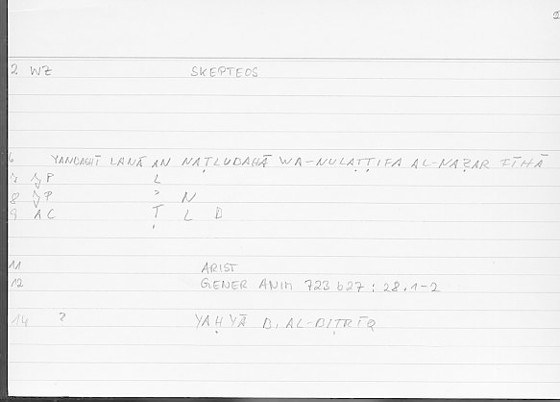 2 WZ SKEPTEOS
6 YANBAGHĪ LANĀ AN NAṬLUBAHĀ WA-NULAṬṬIFA AL-NAẒAR FĪHĀ
7 P L
8 P N
9 AC Ṭ L B
11 ARIST
12 GENER ANIM 723 b27 : 28.1-2
14 ? YAḤYĀ B. AL-BIṬRĪQ